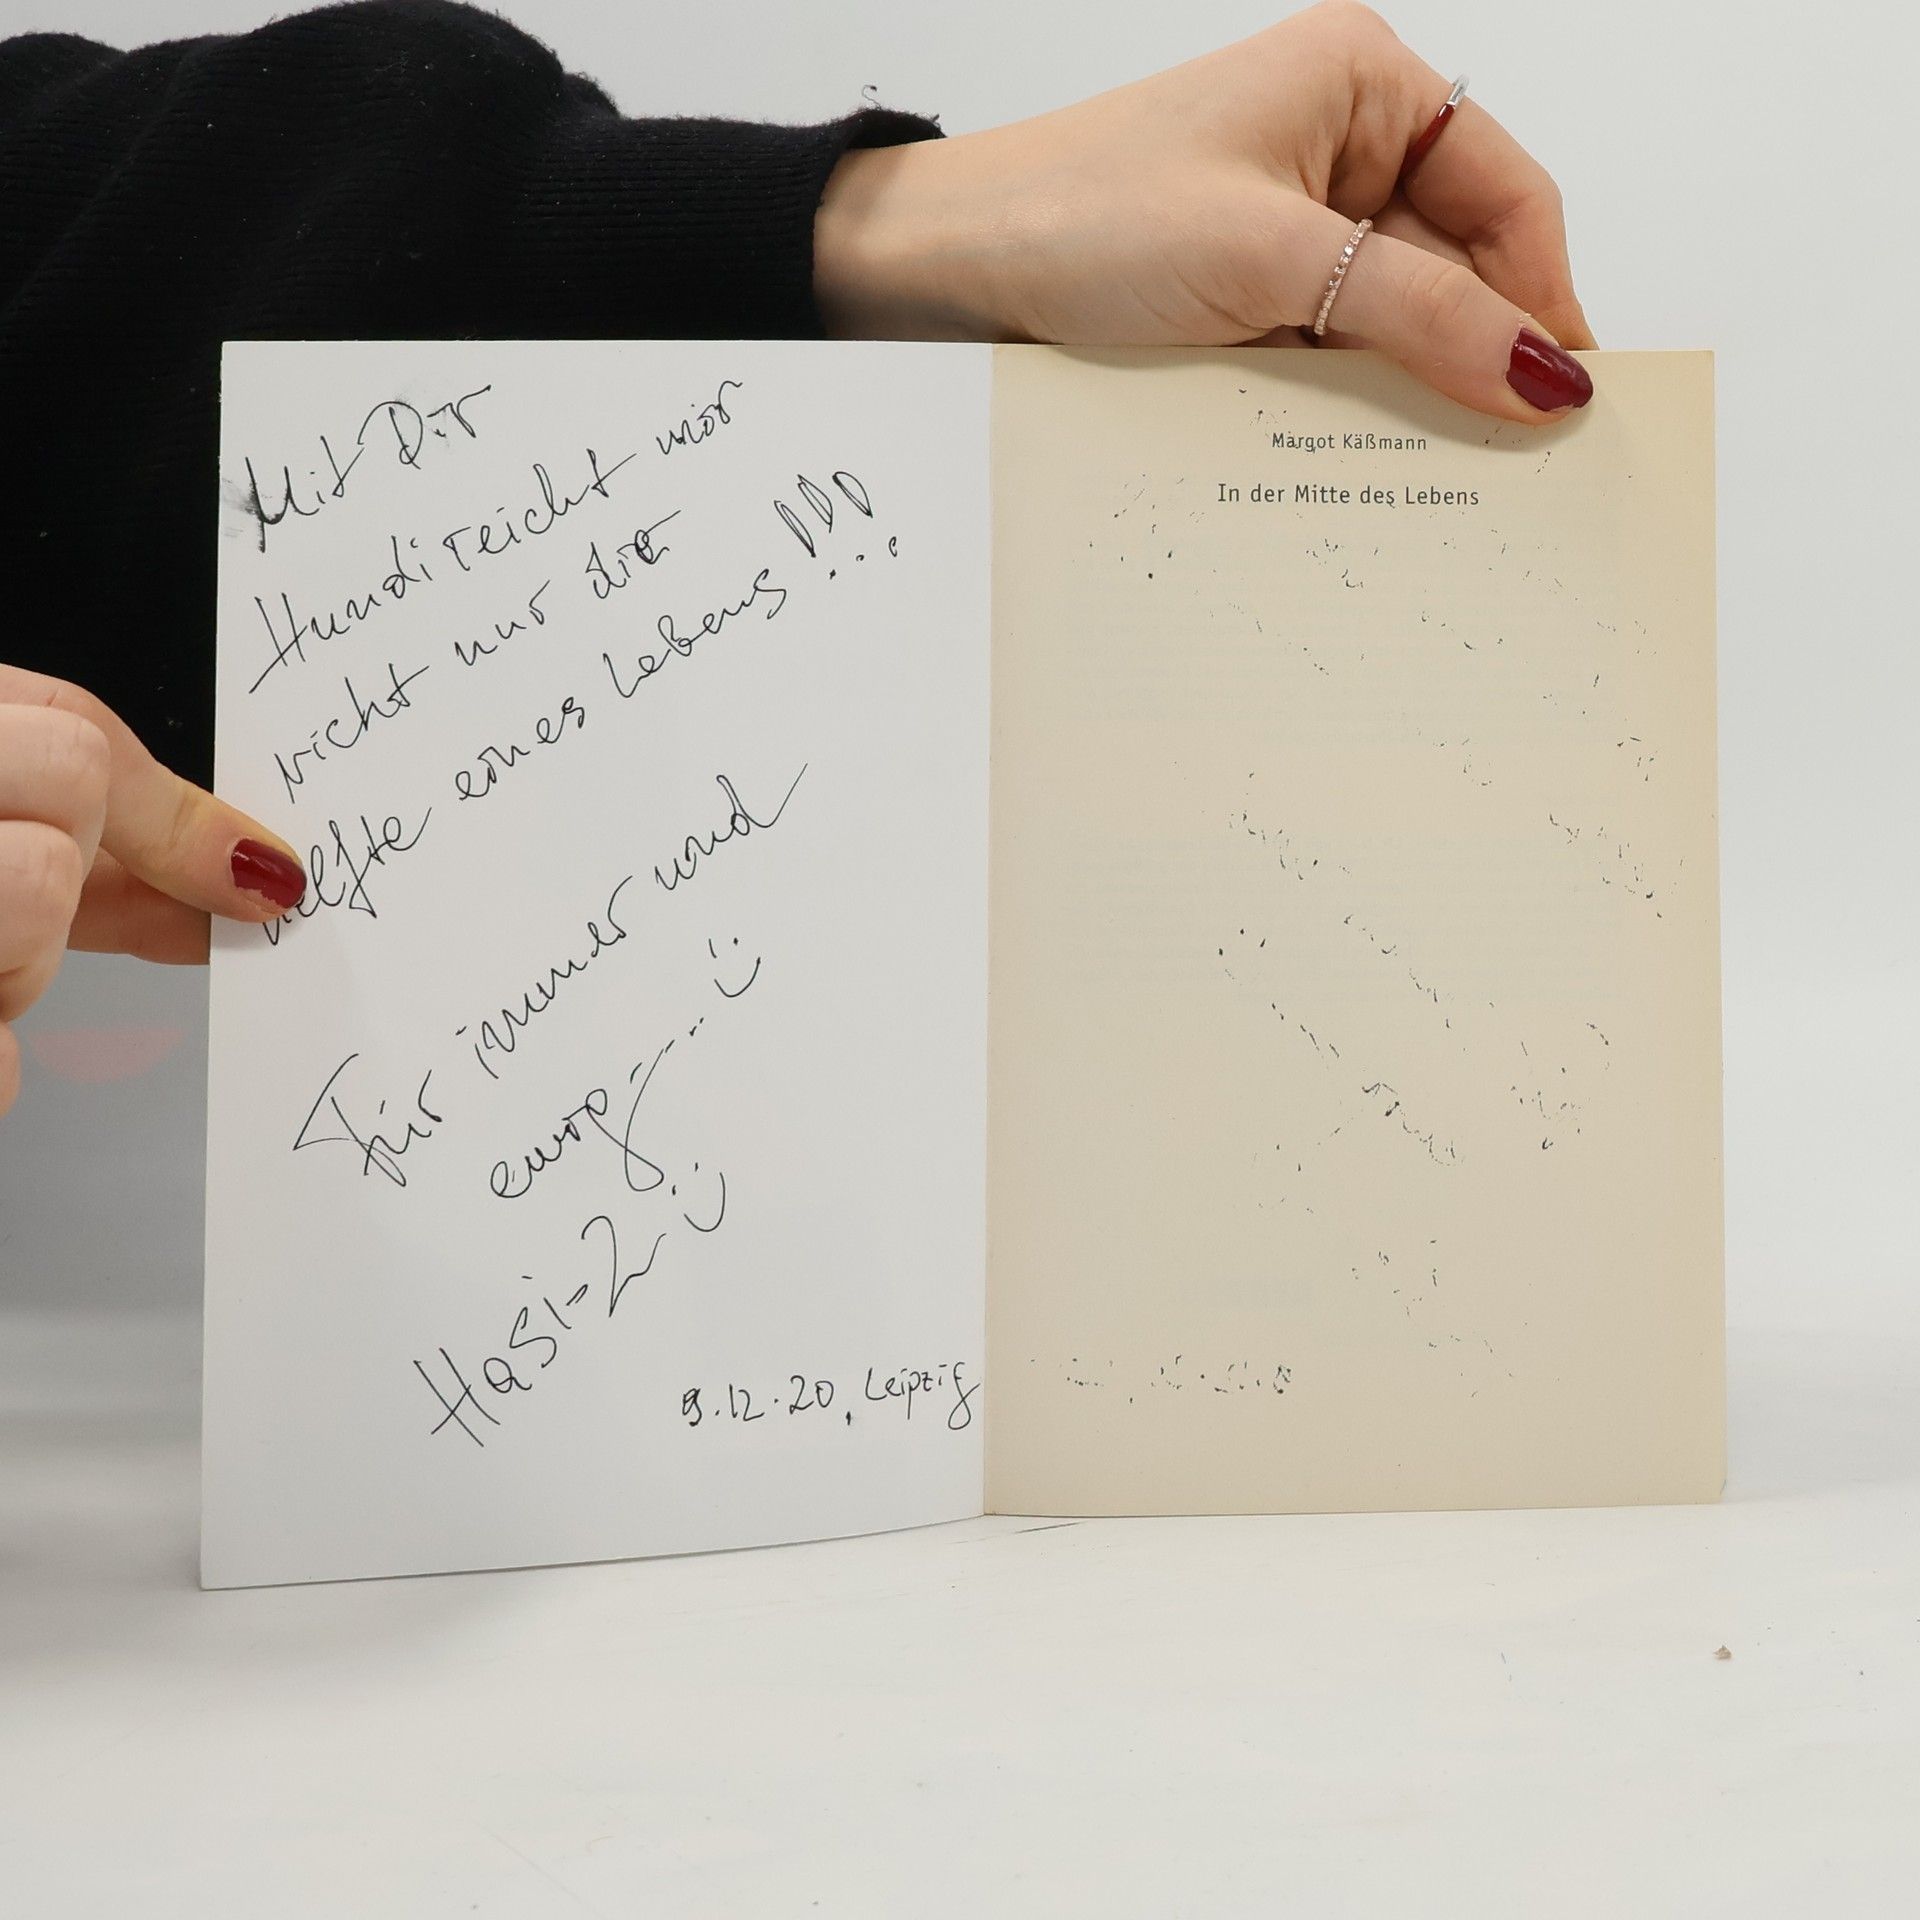 Mit Dir
Hundi reicht mir
nicht nur die
Hälfte eines Lebens !!!
Für immer und
ewig --- :)
Hasi-2 :)
9.12.20, Leipzig
Margot Käßmann
In der Mitte des Lebens